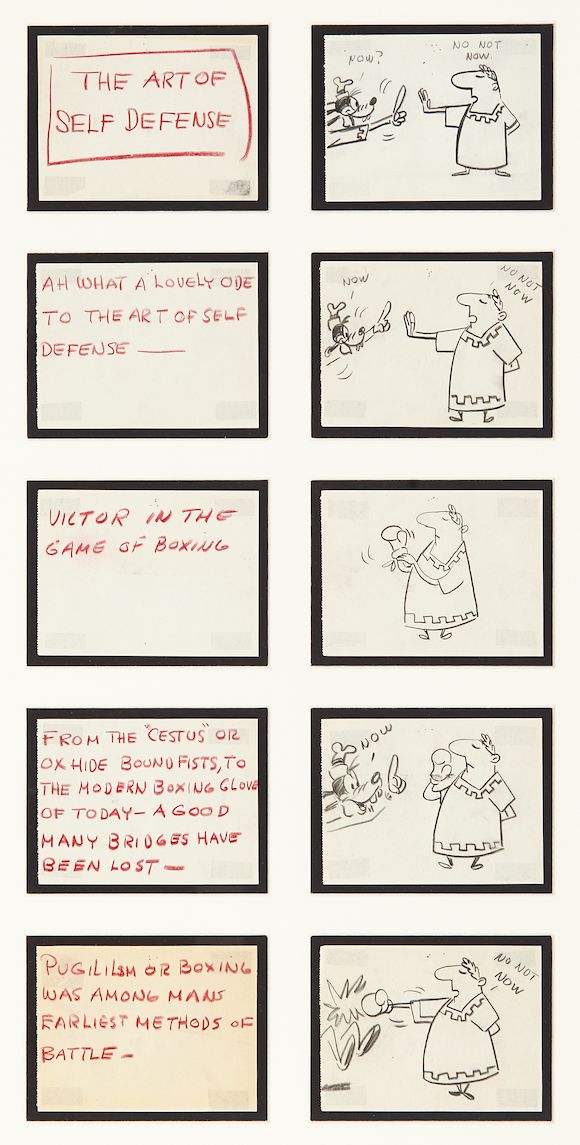 THE ART OF
SELF DEFENSE
NOW?
NO NOT
NOW.
AH WHAT A LOVELY ODE
TO THE ART OF SELF
DEFENSE —
NOW
NO NOT
NOW
VICTOR IN THE
GAME OF BOXING
FROM THE "CESTUS" OR
OXHIDE BOUND FISTS, TO
THE MODERN BOXING GLOVE
OF TODAY — A GOOD
MANY BRIDGES HAVE
BEEN LOST —
NOW
PUGILILSM OR BOXING
WAS AMONG MANS
EARLIEST METHODS OF
BATTLE —
NO NOT
NOW